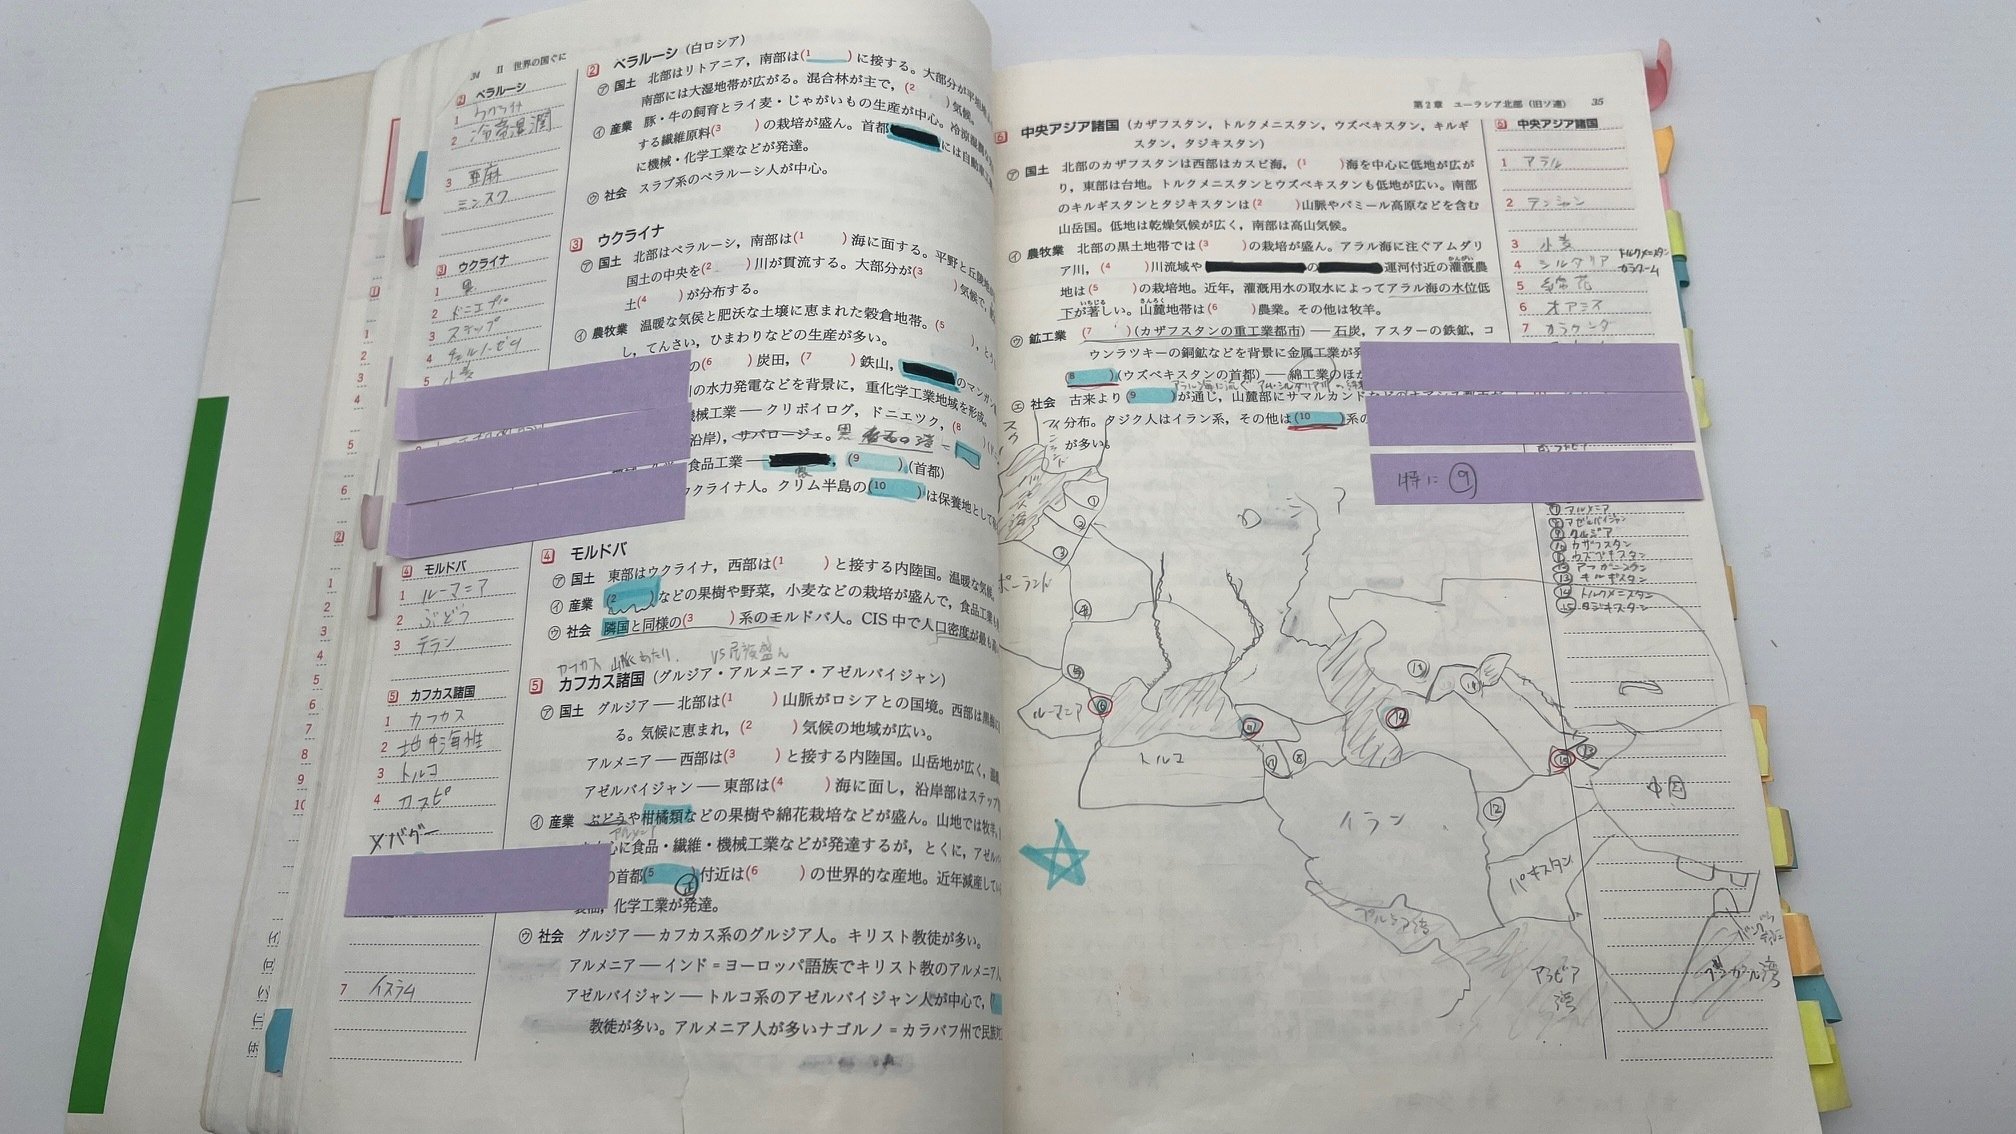 34 Ⅱ 世界の国ぐに
2 ベラルーシ
1 ウクライナ
2 冷帯湿潤
3 亜麻
ミンスク
3 ウクライナ
1 黒
2 ドニエプル
3 ステップ
4 チェルノーゼム
5 小麦
4 モルドバ
1 ルーマニア
2 ぶどう
3 テラン
5 カフカス諸国
1 カフカス
2 地中海性
3 トルコ
4 カスピ
バクー
7 イスラム
2 ベラルーシ（白ロシア）
㋐ 国土 北部はリトアニア，南部は(1 )に接する。大部分が平坦
南部には大湿地帯が広がる。混合林が主で，(2 )気候。
㋑ 産業 豚・牛の飼育とライ麦・じゃがいもの生産が中心。冷涼
する繊維原料(3 )の栽培が盛ん。首都 には自動車
に機械・化学工業などが発達。
㋒ 社会 スラブ系のベラルーシ人が中心。
3 ウクライナ
㋐ 国土 北部はベラルーシ，南部は(1 )海に面する。平野と丘陵
国土の中央を(2 )川が貫流する。大部分が(3 )気候で，
土(4 )が分布する。
㋑ 農牧業 温暖な気侯と肥沃な土壌に恵まれた穀倉地帯。(5 )，とう
し，てんさい，ひまわりなどの生産が多い。
の(6 )炭田，(7 )鉄山， のマンガン
川の水力発電などを背景に，重化学工業地域を形成。
機械工業―クリボイログ，ドニエツク，(8
沿岸），サバロージェ。黒
食品工業― ，(9 )（首都）
ウクライナ人。クリム半島の(10 )は保養地として
4 モルドバ
㋐ 国土 東部はウクライナ，西部は(1 )と接する内陸国。温暖な気候。
㋑ 産業 (2 )などの果樹や野菜，小麦などの栽培が盛んで，食品工業
㋒ 社会 隣国と同様の(3 )系のモルドバ人。CIS中で人口密度が最も
カフカス 山脈あたり． VS民族盛ん
5 カフカス諸国（グルジア・アルメニア・アゼルバイジャン）
㋐ 国土 グルジア―北部は(1 )山脈がロシアとの国境。西部は黒海に
る。気候に恵まれ，(2 )気候の地域が広い。
アルメニア―西部は(3 )と接する内陸国。山岳地が広く，
アゼルバイジャン―東部は(4 )海に面し，沿岸部はステップ
㋑ 産業 ぶどうや柑橘類などの果樹や綿花栽培などが盛ん。山地では牧羊。
アルメニア
心に食品・繊維・機械工業などが発達するが，とくに，アゼルバ
の首都(5 )付近は(6 )の世界的な産地。近年減産して
製油，化学工業が発達。
㋒ 社会 グルジア―カフカス系のグルジア人。キリスト教徒が多い。
アルメニア―インド＝ヨーロッパ語族でキリスト教のアルメニア人
アゼルバイジャン―トルコ系のアゼルバイジャン人が中心で，(7
教徒が多い。アルメニア人が多いナゴルノ＝カラバフ州で民族対
第2章 ユーラシア北部（旧ソ連） 35
6 中央アジア諸国（カザフスタン，トルクメニスタン，ウズベキスタン，キルギ
スタン，タジキスタン）
㋐ 国土 北部のカザフスタンは西部はカスピ海，(1 )海を中心に低地が広が
り，東部は台地。トルクメニスタンとウズベキスタンも低地が広い。南部
のキルギスタンとタジキスタンは(2 )山脈やパミール高原などを含む
山岳国。低地は乾燥気候が広く，南部は高山気候。
㋑ 農牧業 北部の黒土地帯では(3 )の栽培が盛ん。アラル海に注ぐアムダリ
ア川，(4 )川流域や の 運河付近の灌漑農
地は(5 )の栽培地。近年，灌漑用水の取水によってアラル海の水位低
下が著しい。山麓地帯は(6 )農業。その他は牧羊。
㋒ 鉱工業 (7 )（カザフスタンの重工業都市）―石炭，アスターの鉄鉱，コ
ウンラツキーの銅鉱などを背景に金属工業が発
(8 )（ウズベキスタンの首都）―綿工業のほか
㋓ 社会 古来より(9 )が通じ，山麓部にサマルカンドなどのオアシス都市が
分布。タジク人はイラン系，その他は(10 )系の
が多い。
5 中央アジア諸国
1 アラル
2 テンシャン
3 小麦
4 シルダリア
トルクメニスタン
カラクーム
5 綿花
6 オアシス
7 カラガンダ
特に⑨
⑦ アルメニア
⑧ アゼルバイジャン
⑨ グルジア
⑩ カザフスタン
⑪ ウズベキスタン
⑫ アフガニスタン
⑬ キルギスタン
⑭ トルクメニスタン
⑮ タジキスタン
ロシア
ポーランド
ルーマニア
トルコ
イラン
中国
パキスタン
ペルシア湾
アラビア
湾
ベンガル湾